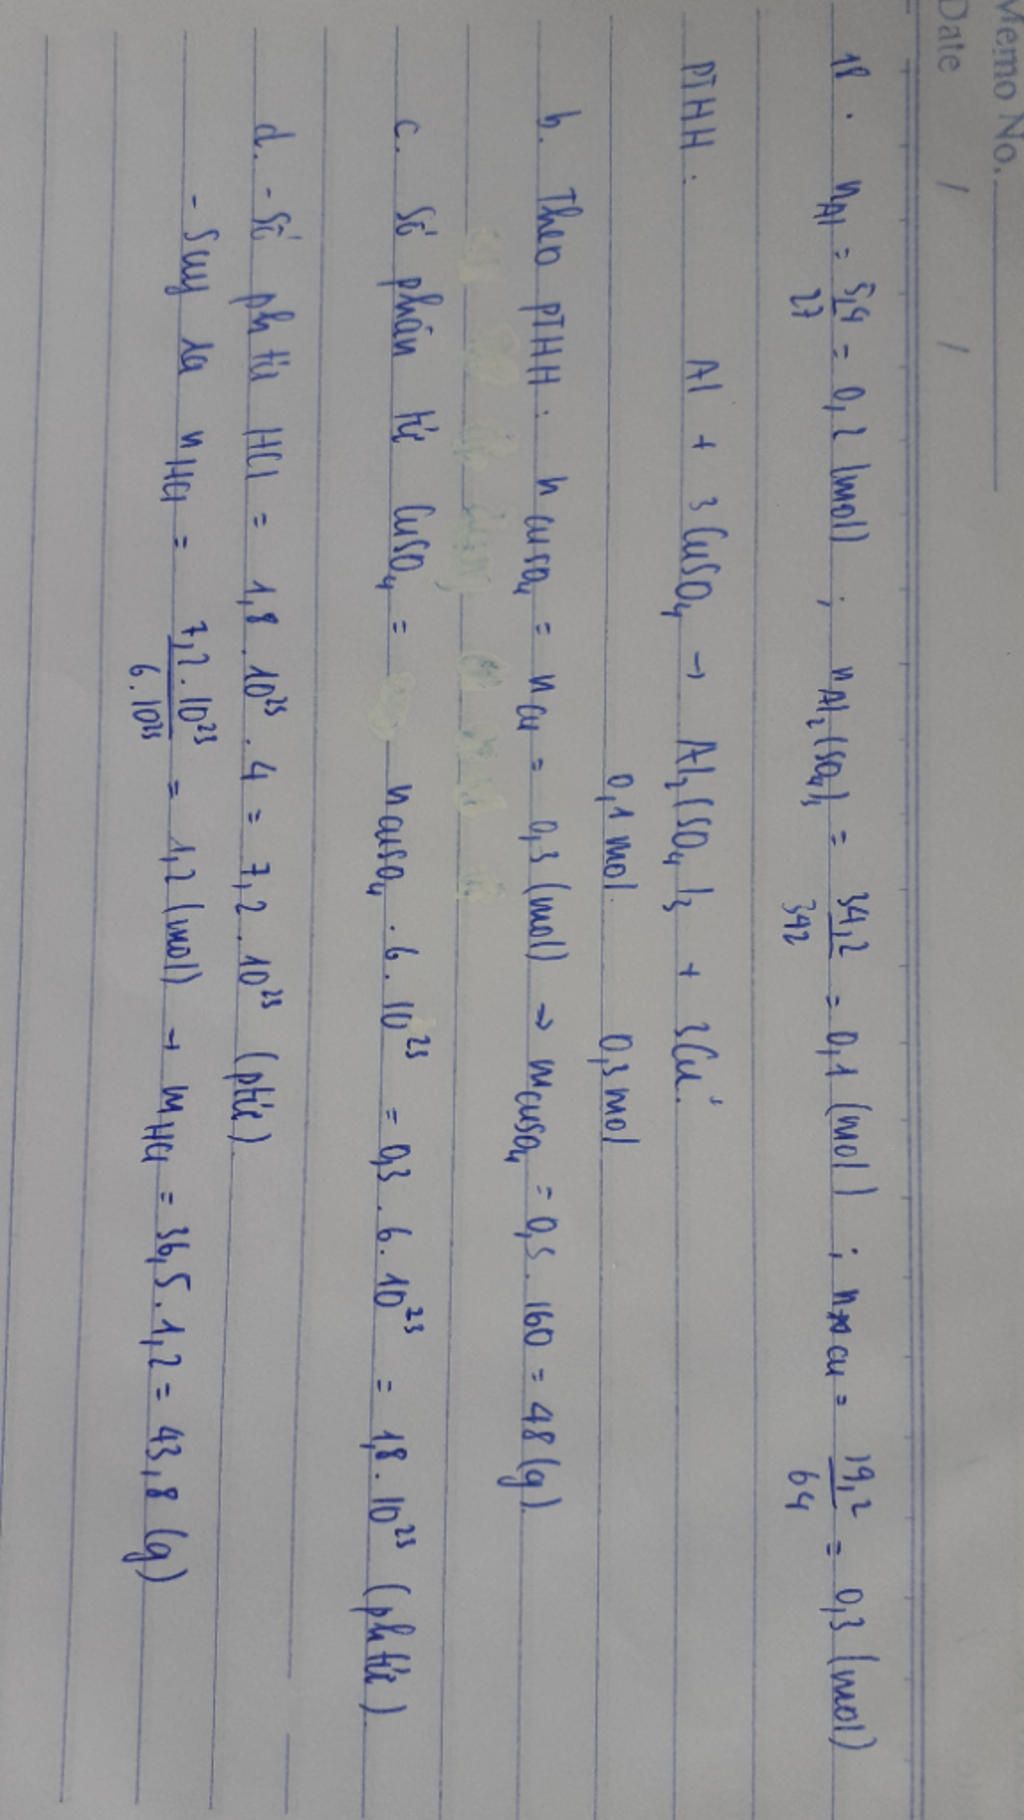 Memo No.
Date / /
18. nAl = 5,4/27 = 0,2 (mol) ; nAl₂(SO₄)₃ = 34,2/342 = 0,1 (mol) ; nCu = 19,2/64 = 0,3 (mol)
PTHH: Al + 3CuSO₄ → Al₂(SO₄)₃ + 3Cu.
0,1 mol 0,3 mol
b. Theo PTHH: nCuSO₄ = nCu = 0,3 (mol) → mCuSO₄ = 0,3 . 160 = 48 (g).
c. Số phân tử CuSO₄ = nCuSO₄ . 6 . 10²³ = 0,3 . 6 . 10²³ = 1,8 . 10²³ (ph tử)
d. - Số ph tử HCl = 1,8 . 10²³ . 4 = 7,2 . 10²³ (ptử)
- Suy ra nHCl = 7,2 . 10²³/6 . 10²³ = 1,2 (mol) → mHCl = 36,5 . 1,2 = 43,8 (g)